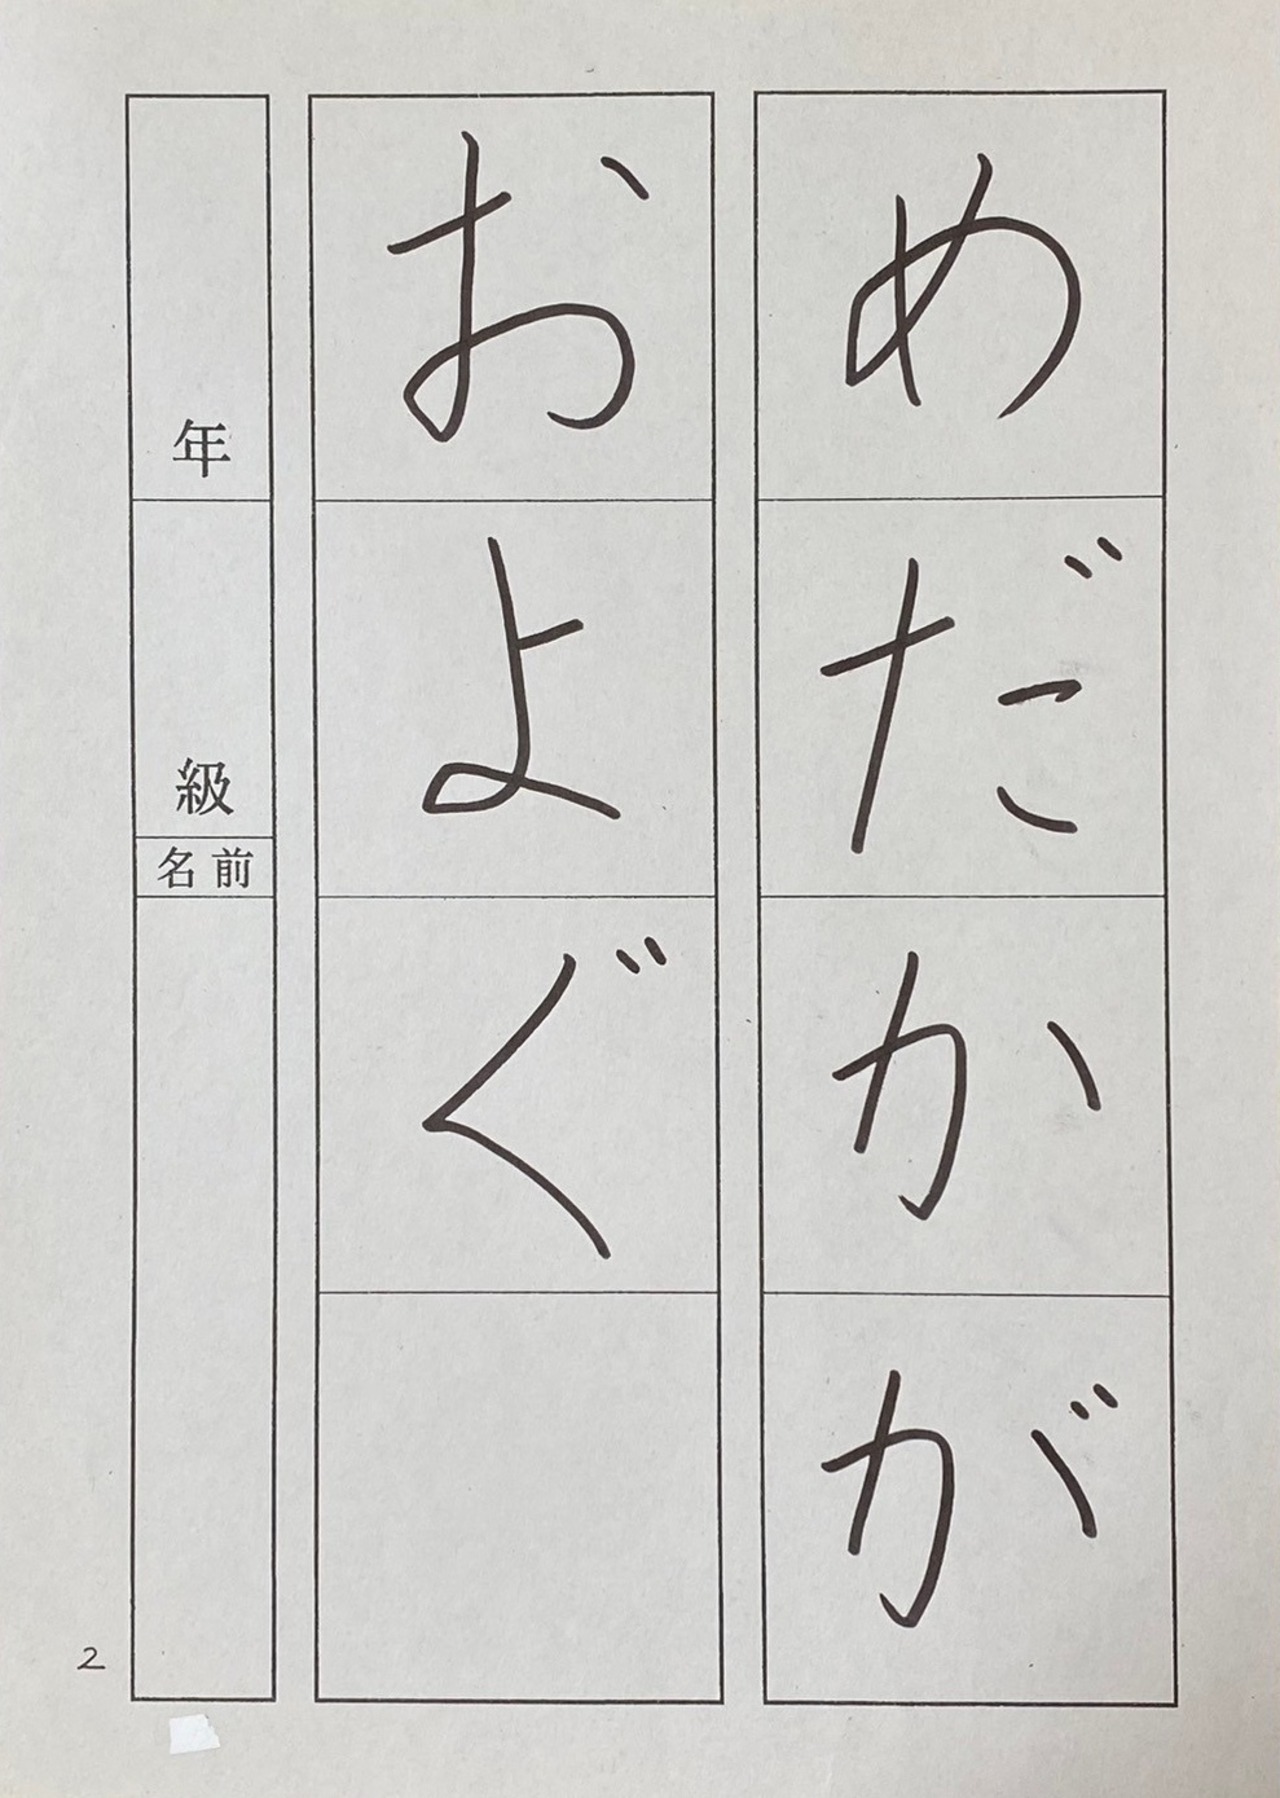 めだかが
およぐ
年 級
名前
2